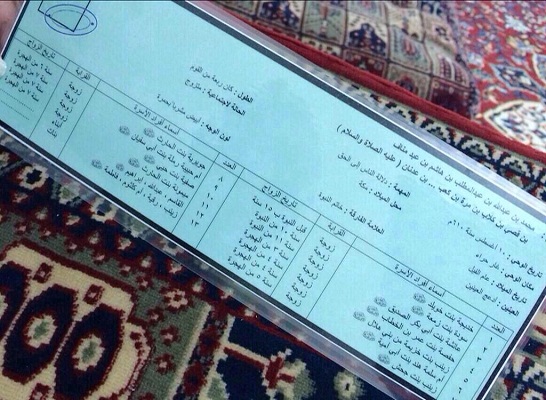 محمد بن عبدالله بن عبدالمطلب بن هاشم بن عبد مناف
بن قصي بن كلاب بن مرة بن كعب ... بن عدنان ( عليه الصلاة والسلام )
تاريخ الوحي : ١٠ اغسطس سنة ٦١٠م
مكان الوحي : غار حراء
تاريخ الميلاد : عام الفيل
العينين : ادعج العينين
المهنة : دلالة الناس الى الحق
محل الميلاد : مكة
العلامة الفارقة : خاتم النبوة
الطول : كان ربعة من القوم
الحالة الاجتماعية : متزوج
لون الوجه : ابيض مشرباً بحمرة
العدد
أسماء أفراد الأسرة
القرابة
تاريخ الزواج
١ خديجة بنت خويلد زوجة قبل النبوة ب ١٥ سنة
٢ سودة بنت زمعة زوجة سنة ١٠ من النبوة
٣ عائشة بنت أبي بكر الصديق زوجة
٤ حفصة بنت عمر بن الخطاب زوجة سنة ٣ من الهجرة
٥ زينب بنت خزيمة من بني هلال زوجة من الهجرة
٦ أم سلمة هند بنت أبي أمية زوجة سنة ٤ من الهجرة
زينب بنت جحش زوجة سنة ٥ من الهجرة
العدد
أسماء أفراد الأسرة
القرابة
تاريخ الزواج
٨ جويرية بنت الحارث زوجة سنة ٦ من الهجرة
٩ أم حبيبة رملة بنت أبي سفيان زوجة من الهجرة
١٠ صفية بنت حيي زوجة سنة ٧ من الهجرة
١١ ميمونة بنت الحارث زوجة سنة ٧ من الهجرة
١٢ القاسم ، عبدالله ، ابراهيم أبناء
١٣ زينب ، رقية ، أم كلثوم ، فاطمة بنات